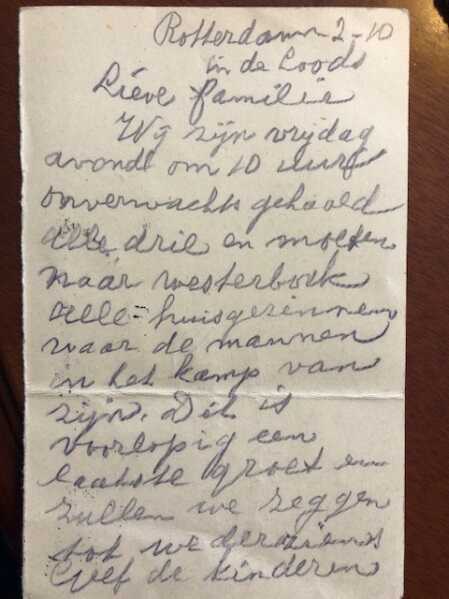 Rotterdam 2-10
in de Loods
Lieve familie
Wij zijn vrijdag
avond om 10 uur
onverwachts gehaald
alle drie en moeten
naar westerbork
alle huisgezinnen
waar de mannen
in het kamp van
zijn. Dit is
voorlopig een
laatste groet en
zullen we zeggen
tot wederziens
Geef de kinderen